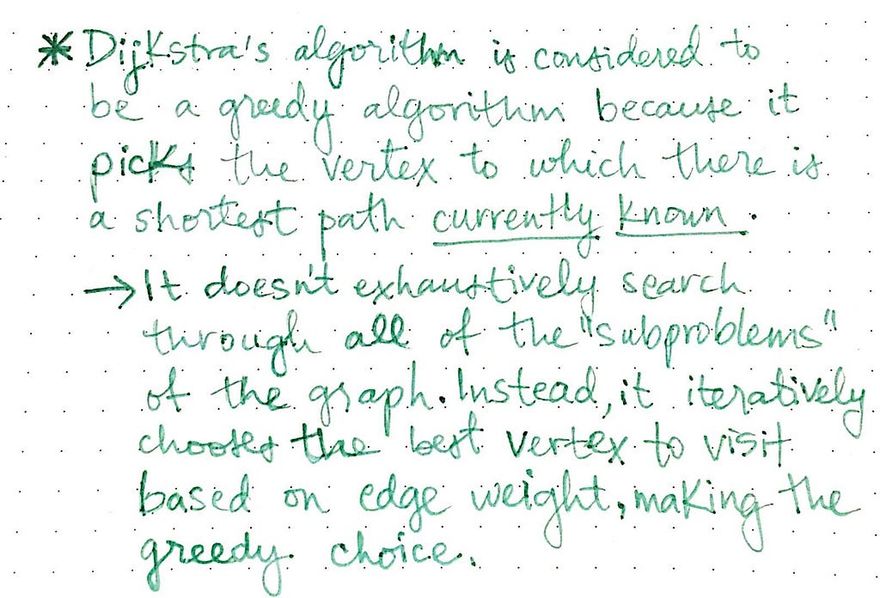 * Dijkstra's algorithm is considered to
be a greedy algorithm because it
picks the vertex to which there is
a shortest path currently known.
→ It doesn't exhaustively search
through all of the "subproblems"
of the graph. Instead, it iteratively
chooses the best vertex to visit
based on edge weight, making the
greedy choice.